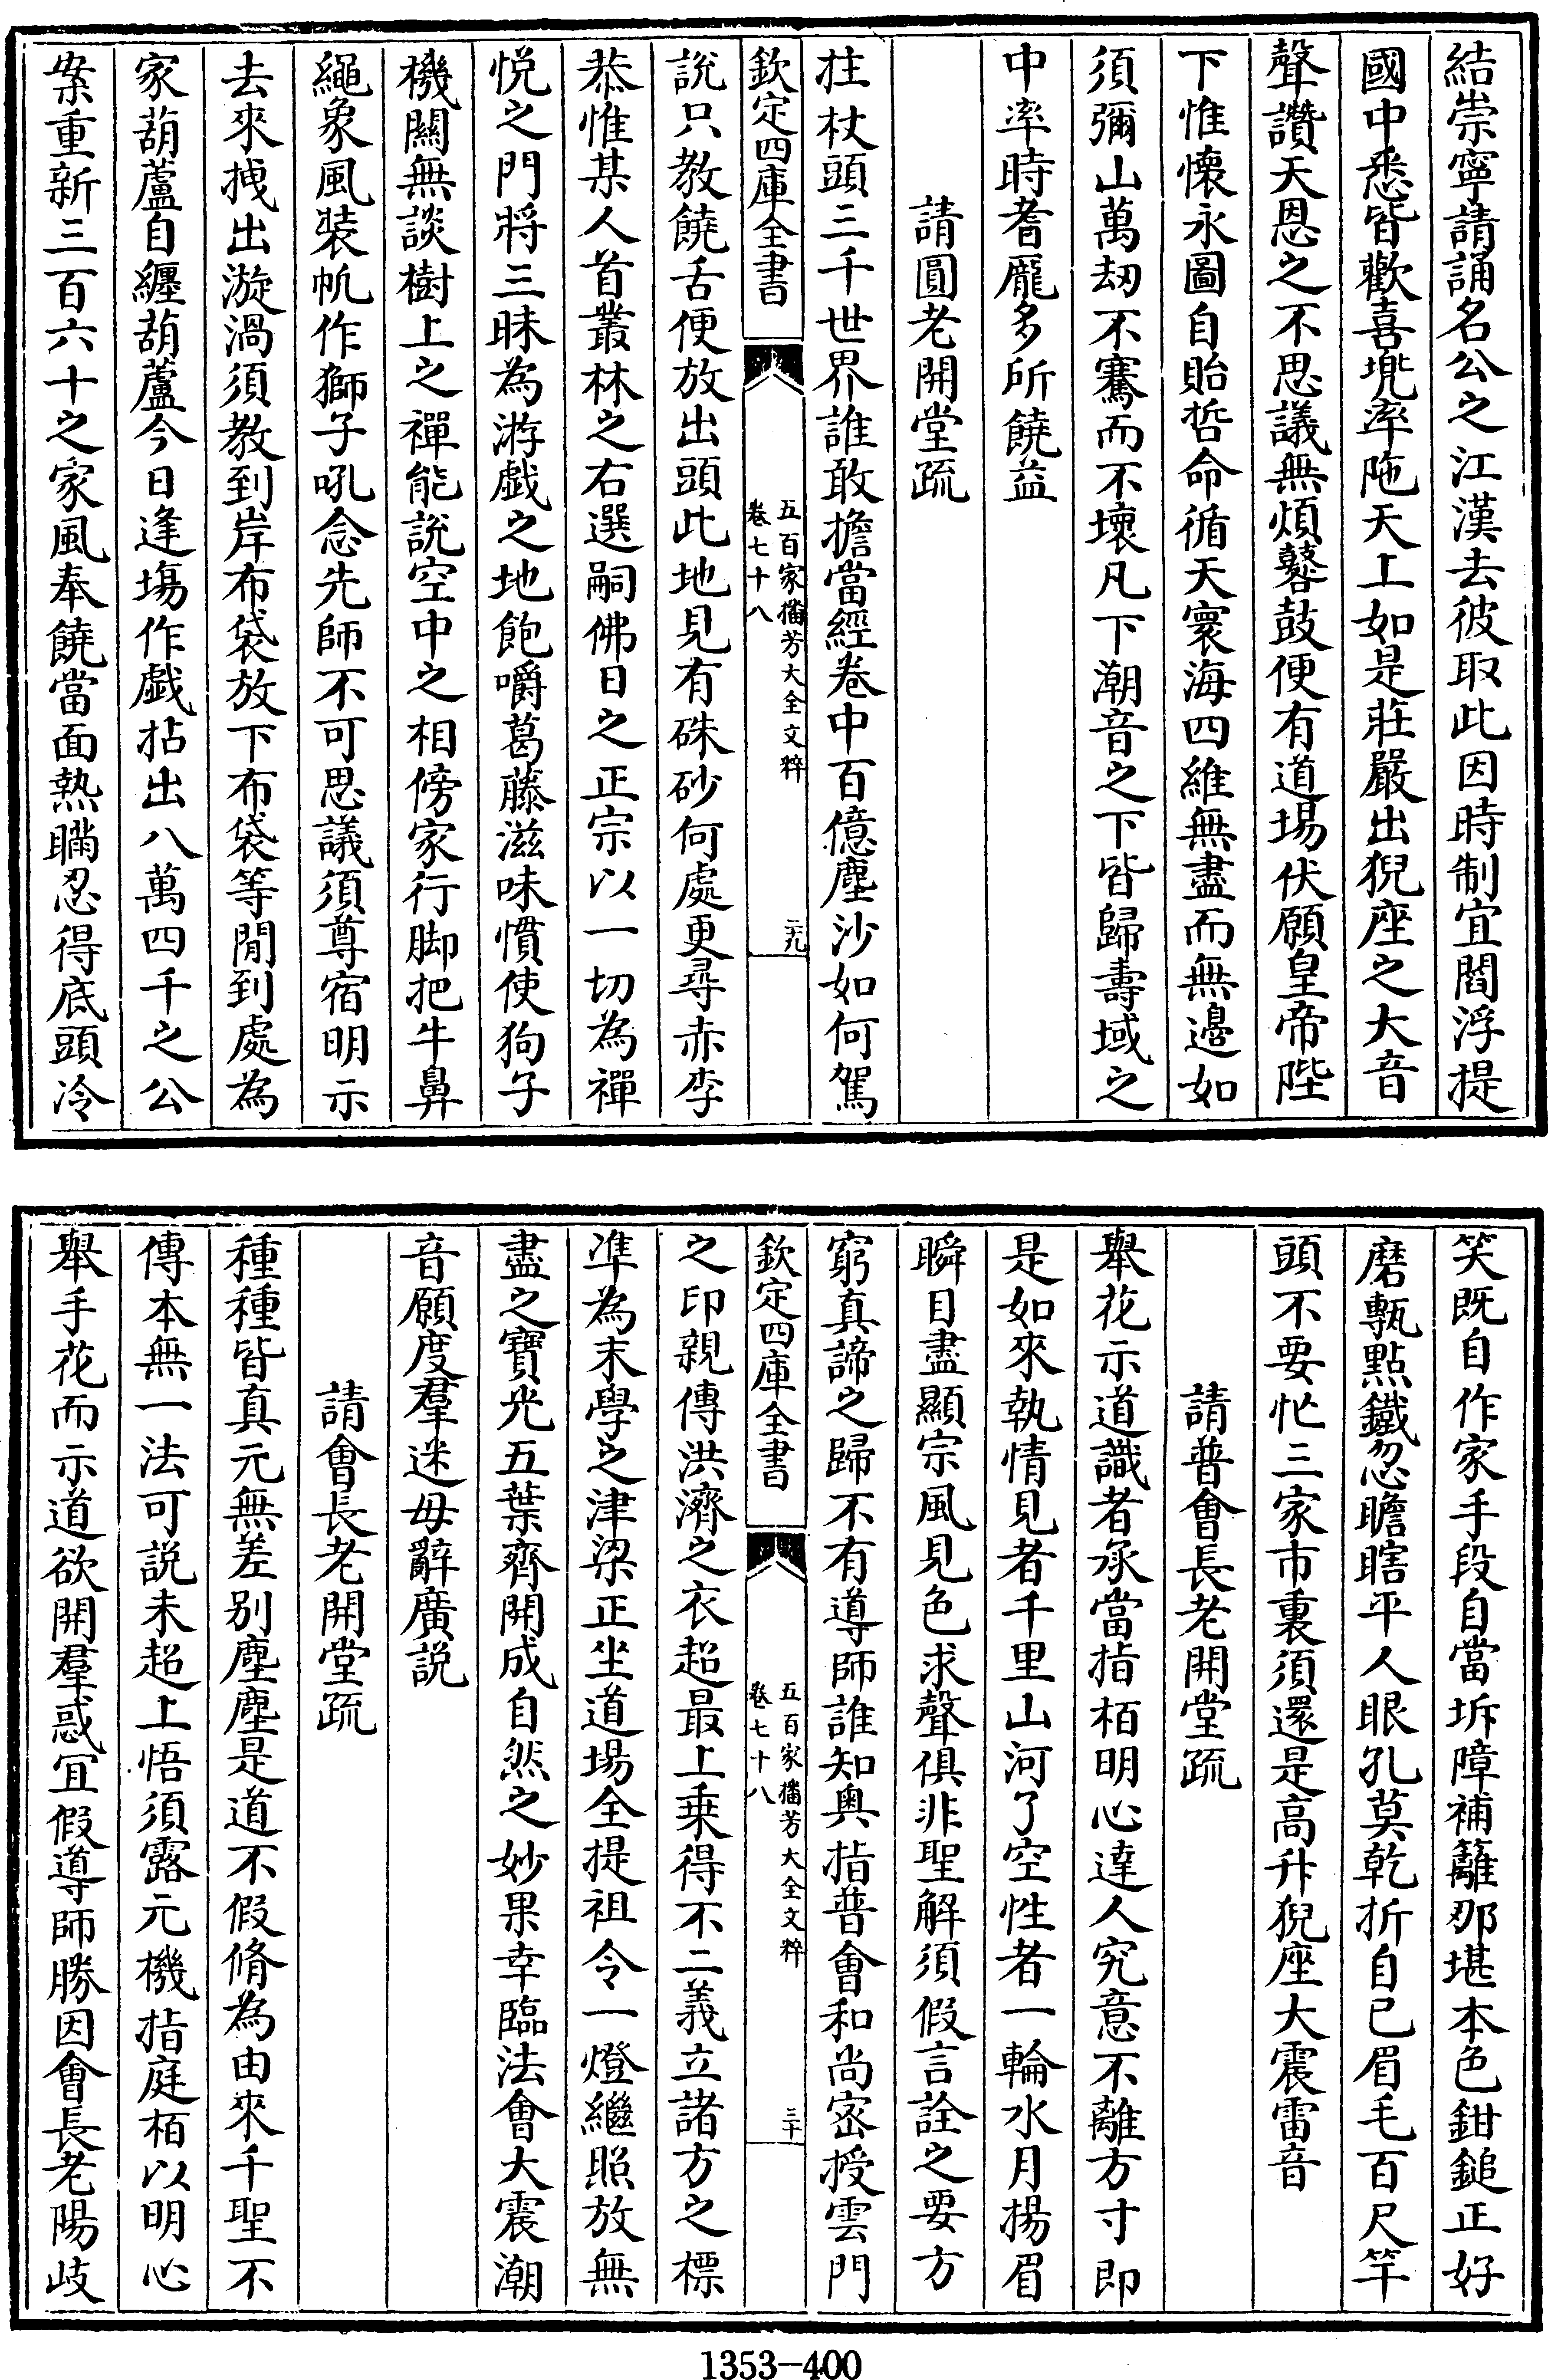 結崇寧請誦名公之江漢去彼取此因時制宜閻浮提
國中悉皆歡喜兠率陁天上如是莊嚴出猊座之大音
聲讚天恩之不思議無煩鼛鼓便有道場伏願皇帝陛
下惟懷永圖自貽哲命循天寰海四維無盡而無邊如
須彌山萬刼不騫而不壞凡下潮音之下皆歸壽域之
中率時耆厖多所饒益
請圓老開堂疏
拄杖頭三千世界誰敢擔當經卷中百億塵沙如何駕
欽定四庫全書
五百家播芳大全文粹
卷七十八
二十九
說只教饒舌便放出頭此地見有硃砂何處更尋赤李
恭惟某人首叢林之右選嗣佛日之正宗以一切為禪
悦之門將三昧為游戲之地飽嚼葛藤滋味慣使狗子
機關無談樹上之禪能說空中之相傍家行脚把牛鼻
繩象風裝帆作獅子吼念先師不可思議須尊宿明示
去來拽出漩渦須教到岸布袋放下布袋等閒到處為
家葫蘆自纏葫蘆今日逢塲作戲拈出八萬四千之公
案重新三百六十之家風奉饒當面熱瞞忍得底頭冷
笑既自作家手段自當坼障補籬那堪本色鉗鎚正好
磨甎點鐵忽瞻瞎平人眼孔莫乾折自已眉毛百尺竿
頭不要忙三家市裏須還是高升猊座大震雷音
請普會長老開堂疏
舉花示道識者承當指栢明心達人究意不離方寸即
是如來執情見者千里山河了空性者一輪水月揚眉
瞬目盡顯宗風見色求聲俱非聖解須假言詮之要方
窮真諦之歸不有導師誰知奥指普會和尚宻授雲門
欽定四庫全書
五百家播芳大全文粹
卷七十八
三十
之印親傳洪濟之衣超最上乘得不二義立諸方之標
凖為末學之津梁正坐道場全提祖令一燈繼照放無
盡之寶光五葉齊開成自然之妙果幸臨法會大震潮
音願度羣迷毋辭廣説
請會長老開堂疏
種種皆真元無差别塵塵是道不假脩為由來千聖不
傳本無一法可説未超上悟須露元機指庭栢以明心
舉手花而示道欲開羣惑冝假導師勝因會長老陽岐
1353—400